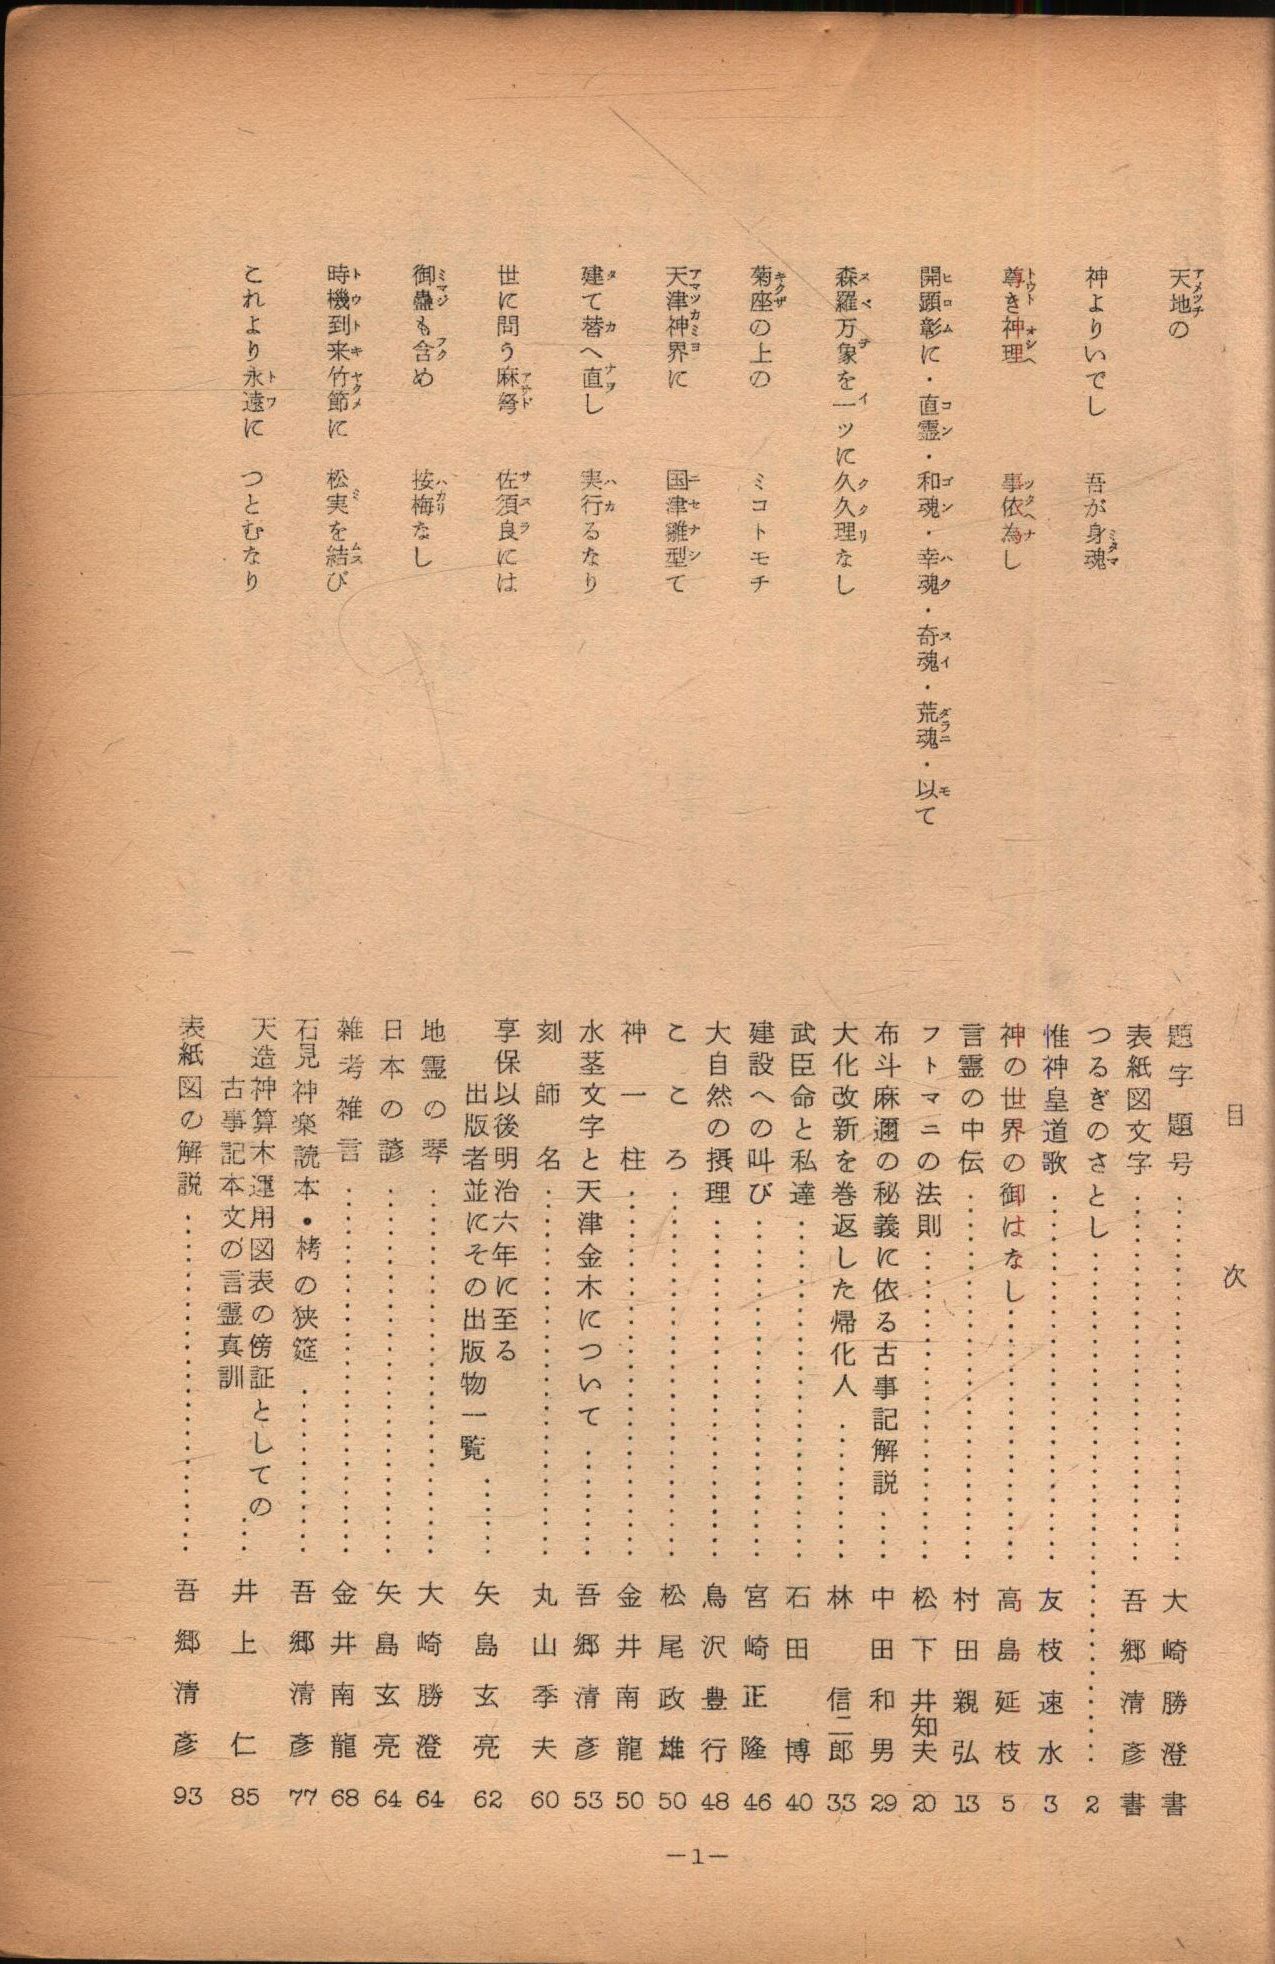 目次
天地の
神よりいでし 吾が身魂
尊き神理 事依為し
開顕彰に・直霊・和魂・幸魂・奇魂・荒魂・以て
森羅万象を一ツに久久理なし
菊座の上の ミコトモチ
天津神界に 国津雛型て
建て替へ直し 実行るなり
世に問う麻弩 佐須良には
御蠱も含め 按梅なし
時機到来竹節に 松実を結び
これより永遠に つとむなり
題字題号 大崎勝澄書
表紙図文字 吾郷清彦書
つるぎのさとし 2
惟神皇道歌 友枝速水 3
神の世界の御はなし 高島延枝 5
言霊の中伝 村田親弘 13
フトマニの法則 松下井知夫 20
布斗麻邇の秘義に依る古事記解説 中田和男 29
大化改新を巻返した帰化人 林信二郎 33
武臣命と私達 石田博 40
建設への叫び 宮崎正隆 46
大自然の摂理 鳥沢豊行 48
こころ 松尾政雄 50
神一柱 金井南龍 50
水茎文字と天津金木について 吾郷清彦 53
刻師名 丸山季夫 60
享保以後明治六年に至る
出版者並にその出版物一覧 矢島玄亮 62
地霊の琴 大崎勝澄 64
日本の諺 矢島玄亮 64
雑考雑言 金井南龍 68
石見神楽読本・栲の狭筵 吾郷清彦 77
天造神算木運用図表の傍証としての
古事記本文の言霊真訓 井上仁 85
表紙図の解説 吾郷清彦 93
—1—